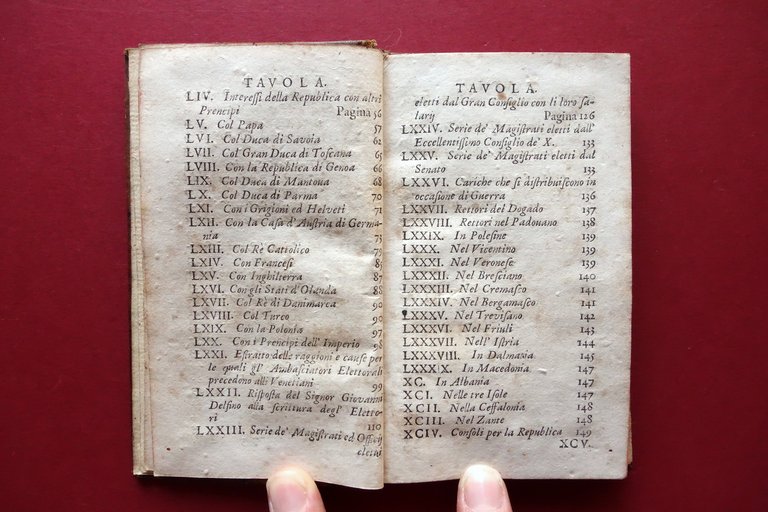 TAVOLA.
LIV. Intereſſi della Republica con altri
Prencipi Pagina 56
LV. Col Papa 57
LVI. Col Duca di Savoia 62
LVII. Col Gran Duca di Toſcana 65
LVIII. Con la Republica di Genoa 66
LIX. Col Duca di Mantoua 68
LX. Col Duca di Parma 70
LXI. Con i Grigioni ed Helveti 71
LXII. Con la Caſa d'Auſtria di Germa-
nia 73
LXIII. Col Rè Cattolico
LXIV. Con Franceſi
LXV. Con Inghilterra 87
LXVI. Con gli Stati d'Olanda 88
LXVII. Col Rè di Danimarca 90
LXVIII. Col Turco 90
LXIX. Con la Polonia 97
LXX. Con i Prencipi dell' Imperio 98
LXXI. Eſtratto delle raggioni e cauſe per
le quali gl' Ambaſciatori Elettorali
precedono alli Venetiani 99
LXXII. Riſpoſta del Signor Giovanni
Delfino alla ſcrittura degl' Eletto-
ri 110
LXXIII. Serie de' Magiſtrati ed Officij
eletti
TAVOLA.
eletti dal Gran Conſiglio con li loro ſa-
lary Pagina 126
LXXIV. Serie de' Magiſtrati eletti dall'
Eccellentiſſimo Conſiglio de' X. 133
LXXV. Serie de' Magiſtrati eletti dal
Senato 133
LXXVI. Cariche che ſi diſtribuiſcono in
occaſione di Guerra 136
LXXVII. Rettori del Dogado 137
LXXVIII. Rettori nel Padouano 138
LXXIX. In Poleſine 139
LXXX. Nel Vicentino 139
LXXXI. Nel Veroneſe 139
LXXXII. Nel Breſciano 140
LXXXIII. Nel Cremaſco 141
LXXXIV. Nel Bergamaſco 141
LXXXV. Nel Treviſano 142
LXXXVI. Nel Friuli 143
LXXXVII. Nell' Iſtria 144
LXXXVIII. In Dalmazia 145
LXXXIX. In Macedonia 147
XC. In Albania 147
XCI. Nelle tre Iſole 147
XCII. Nella Ceffalonia 148
XCIII. Nel Zante 148
XCIV. Conſoli per la Republica 149
XCV.